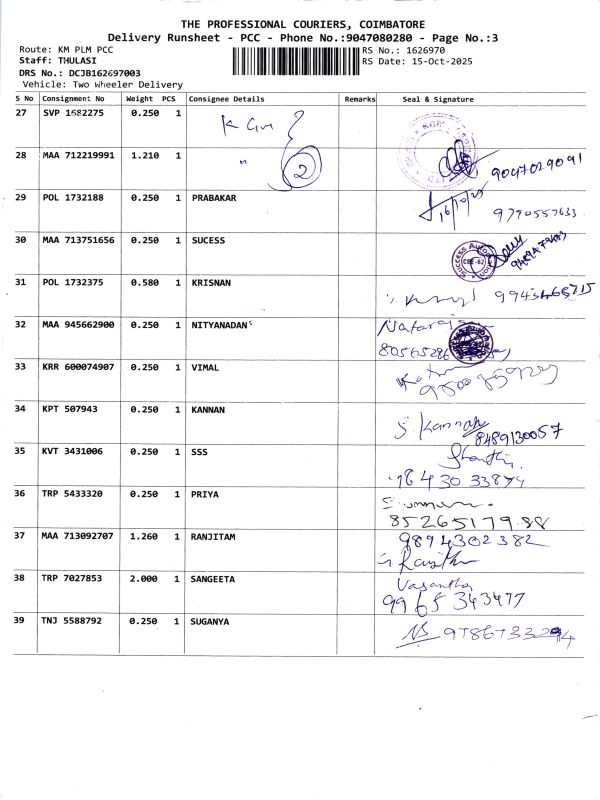 THE PROFESSIONAL COURIERS, COIMBATORE
Delivery Runsheet - PCC - Phone No.:9047080280 - Page No.:3
Route: KM PLM PCC
RS No.: 1626970
Staff: THULASI
RS Date: 15-Oct-2025
DRS No.: DCJB162697003
Vehicle: Two Wheeler Delivery
S No Consignment No Weight PCS Consignee Details Remarks Seal & Signature
27 SVP 1682275 0.250 1
28 MAA 712219991 1.210 1 " 2 9047029091
29 POL 1732188 0.250 1 PRABAKAR 9790557633
30 MAA 713751656 0.250 1 SUCESS
31 POL 1732375 0.580 1 KRISNAN
32 MAA 945662900 0.250 1 NITYANADAN
33 KRR 600074907 0.250 1 VIMAL
34 KPT 507943 0.250 1 KANNAN S. Kannan 8489130057
35 KVT 3431006 0.250 1 SSS Shanthi
36 TRP 5433320 0.250 1 PRIYA 8526517988
37 MAA 713092707 1.260 1 RANJITAM 9894302382
38 TRP 7027853 2.000 1 SANGEETA Vasantha
9965343477
39 TNJ 5588792 0.250 1 SUGANYA